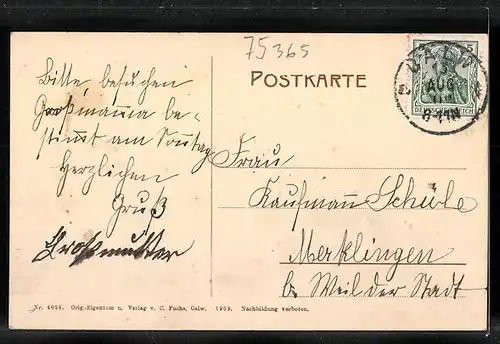 75365
POSTKARTE
CALW
13
AUG
8-11 N
5
DEUTSCHES REICH
Bitte besuchen
Großmama be-
stimmt am Sonntag
Herzlichen
Gruß
Großmutter
Frau
Kaufmann Schüle
Merklingen
b. Weil der Stadt
Nr. 4003. Orig.-Eigentum u. Verlag v. C. Fuchs, Calw. 1909. Nachbildung verboten.